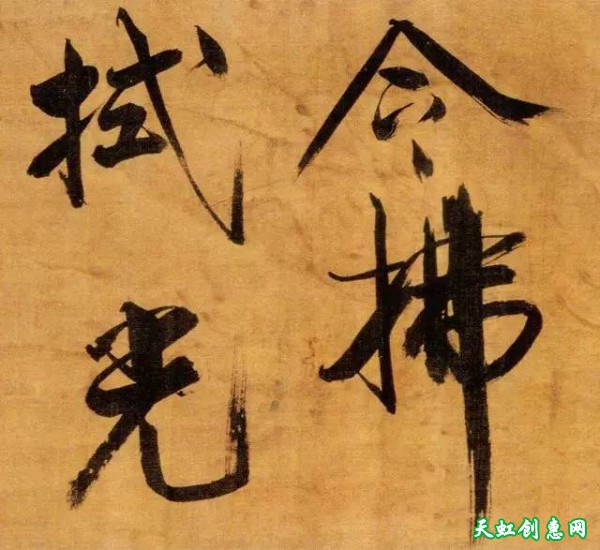 令拂
拭光
天虹创惠网